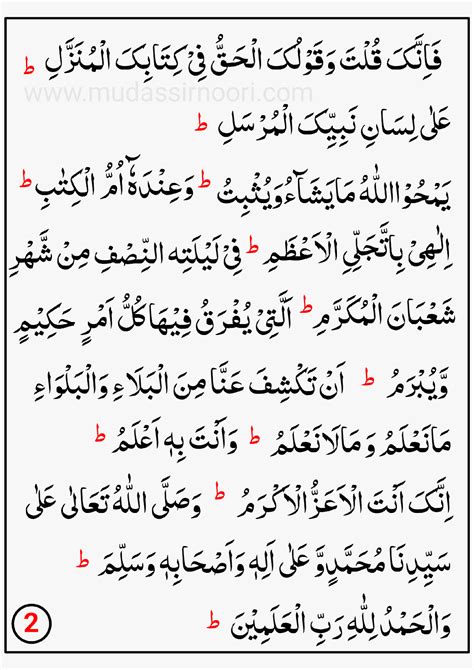 فَاِنَّکَ قُلْتَ وَقَوْلُکَ الْحَقُّ فِیْ کِتَابِکَ الْمُنَزَّلِ ط
www.mudassirnoori.com
عَلٰی لِسَانِ نَبِیِّکَ الْمُرْسَلِ ط
یَمْحُوا اللّٰهُ مَا یَشَآءُ وَیُثْبِتُ ط وَعِنْدَهٗٓ اُمُّ الْکِتٰبِ ط
اِلٰهِیْ بِالتَّجَلِّی الْاَعْظَمِ ط فِیْ لَیْلَتِهِ النِّصْفِ مِنْ شَهْرِ
شَعْبَانَ الْمُکَرَّمِ ط اَلَّتِیْ یُفْرَقُ فِیْهَا کُلُّ اَمْرٍ حَکِیْمٍ
وَّیُبْرَمُ ط اَنْ تَکْشِفَ عَنَّا مِنَ الْبَلَاءِ وَالْبَلْوَاءِ
مَا نَعْلَمُ وَمَا لَا نَعْلَمُ ط وَاَنْتَ بِهٖ اَعْلَمُ ط
اِنَّکَ اَنْتَ الْاَعَزُّ الْاَکْرَمُ ط وَصَلَّی اللّٰهُ تَعَالٰی عَلٰی
سَیِّدِنَا مُحَمَّدٍ وَّعَلٰی اٰلِهٖ وَاَصْحَابِهٖ وَسَلِّمَ ط
وَالْحَمْدُ لِلّٰهِ رَبِّ الْعٰلَمِیْنَ ط
2